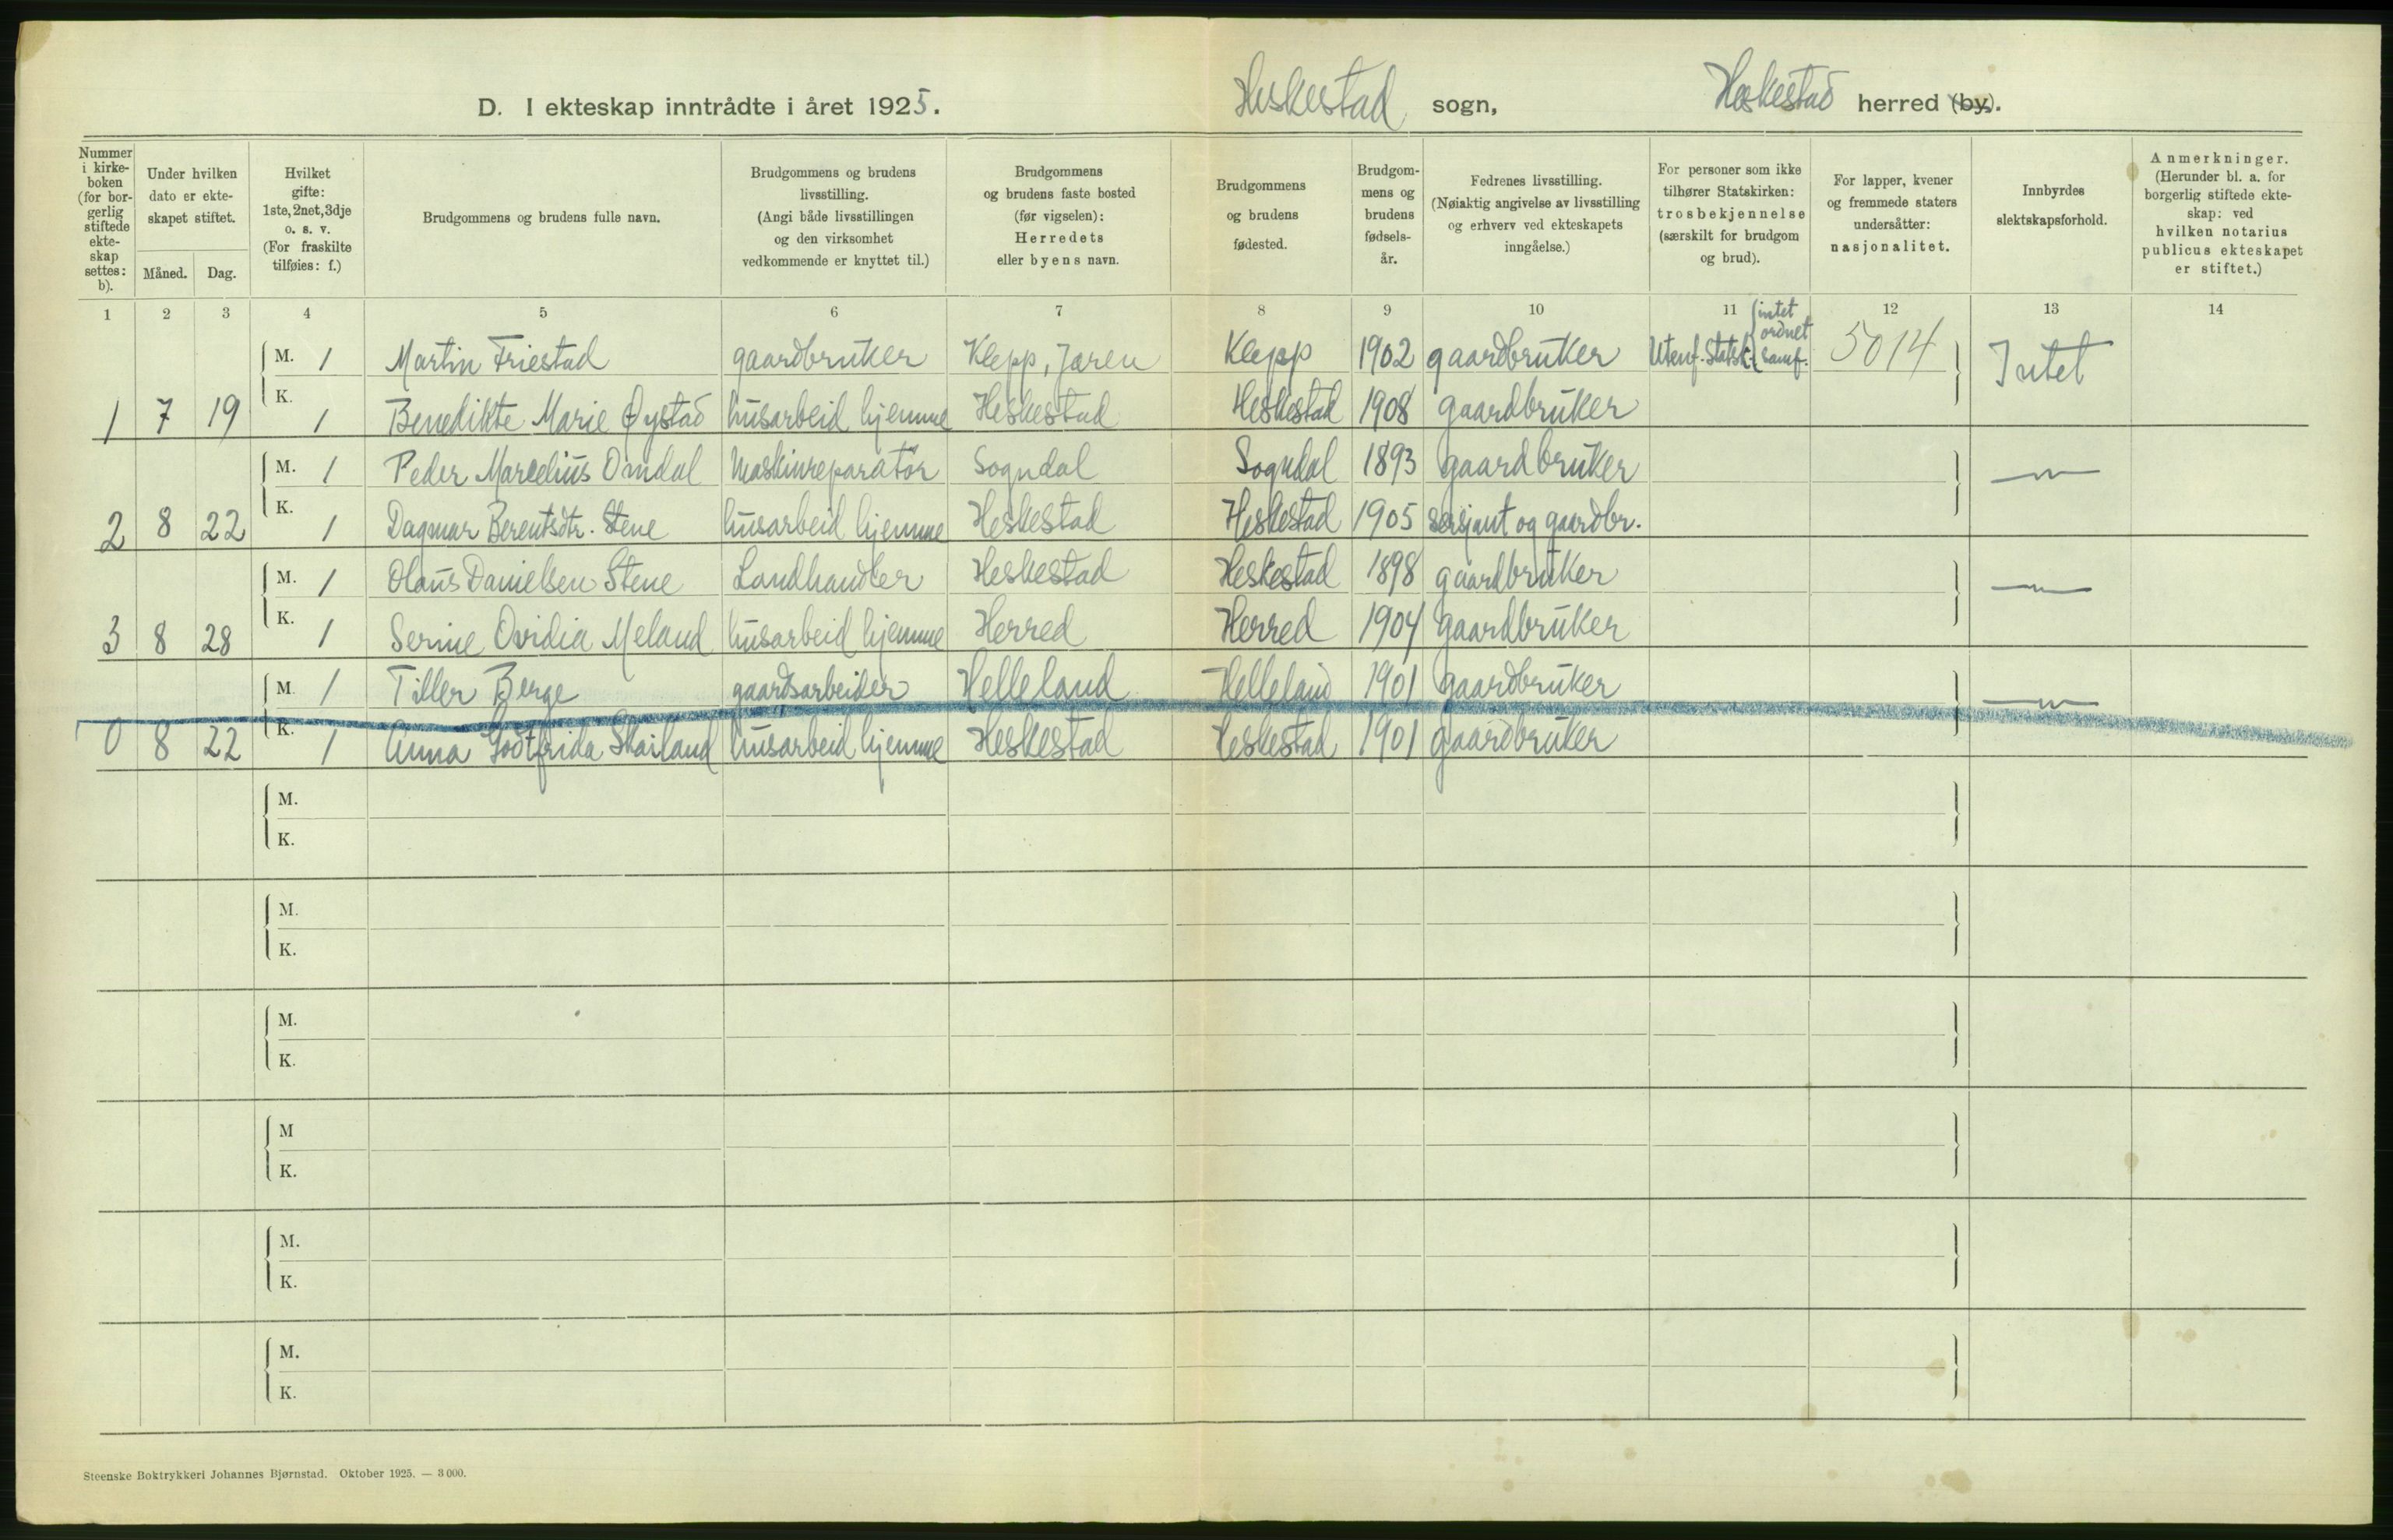 D. I ekteskap inntrådte i året 1925. Heskestad sogn, Heskestad herred (by).
Nummer i kirke-boken (for bor-gerlig stiftede ekte-skap settes: b).
Under hvilken dato er ekte-skapet stiftet.
Måned. Dag.
Hvilket gifte: 1ste, 2net, 3dje o. s. v. (For fraskilte tilføies: f.)
Brudgommens og brudens fulle navn.
Brudgommens og brudens livsstilling. (Angi både livsstillingen og den virksomhet vedkommende er knyttet til.)
Brudgommens og brudens faste bosted (før vigselen): Herredets eller byens navn.
Brudgommens og brudens fødested.
Brudgom-mens og brudens fødsels-år.
Fedrenes livsstilling. (Nøiaktig angivelse av livsstilling og erhverv ved ekteskapets inngåelse.)
For personer som ikke tilhører Statskirken: trosbekjennelse (særskilt for brudgom og brud).
For lapper, kvener og fremmede staters undersåtter: nasjonalitet.
Innbyrdes slektskapsforhold.
Anmerkninger. (Herunder bl. a. for borgerlig stiftede ekte-skap: ved hvilken notarius publicus ekteskapet er stiftet.)
1 2 3 4 5 6 7 8 9 10 11 12 13 14
M. 1 Martin Friestad gaardbruker Klepp, Jæren Klepp 1902 gaardbruker Utenf. Statsk. (intet ordnet samf. 5014 Intet
1 7 19 K. 1 Benedikte Marie Øystad husarbeid hjemme Heskestad Heskestad 1908 gaardbruker
M. 1 Peder Marcelius Omdal Maskinreparatør Sogndal Sogndal 1893 gaardbruker —〃—
2 8 22 K. 1 Dagmar Berentsdtr. Stene husarbeid hjemme Heskestad Heskestad 1905 sersjant og gaardbr.
M. 1 Olaus Danielsen Stene Landhandler Heskestad Heskestad 1898 gaardbruker —〃—
3 8 28 K. 1 Serine Ovidia Meland husarbeid hjemme Herred Herred 1904 gaardbruker
M. 1 Tiller Berge gaardsarbeider Helleland Helleland 1901 gaardbruker —〃—
0 8 22 K. 1 Anna Godtfrida Skailand husarbeid hjemme Heskestad Heskestad 1901 gaardbruker
M.
K.
M.
K.
M.
K.
M
K.
M.
K.
M.
K.
Steenske Boktrykkeri Johannes Bjørnstad. Oktober 1925. — 3 000.